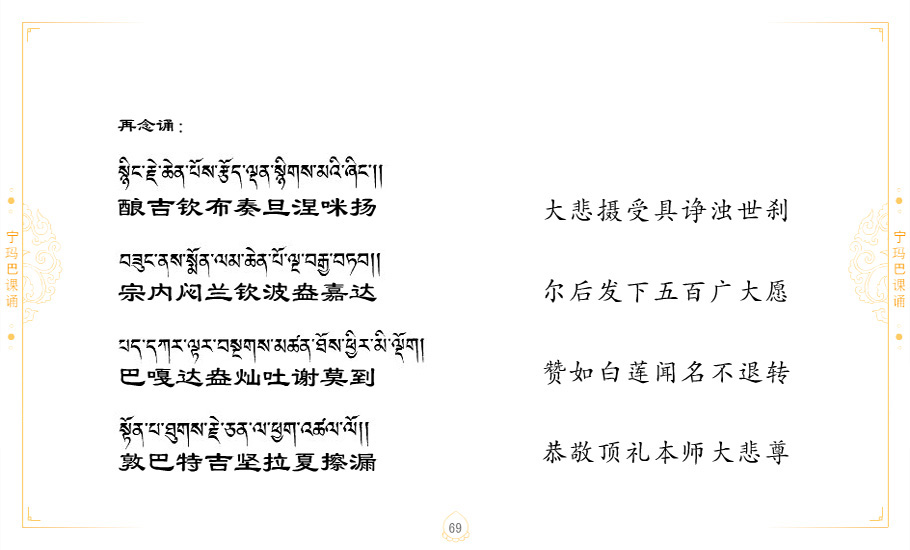 再念诵：
སྙིང་རྗེ་ཆེན་པོས་རྩོད་ལྡན་སྙིགས་མའི་ཞིང་།།
酿吉钦布奏旦涅咪扬
大悲摄受具诤浊世刹
བཟུང་ནས་སྨོན་ལམ་ཆེན་པོ་ལྔ་བརྒྱ་བཏབ།།
宗内闷兰钦波盎嘉达
尔后发下五百广大愿
པད་དཀར་ལྟར་བསྔགས་མཚན་ཐོས་ཕྱིར་མི་ལྡོག།
巴嘎达盎灿吐谢莫到
赞如白莲闻名不退转
སྟོན་པ་ཐུགས་རྗེ་ཅན་ལ་ཕྱག་འཚལ་ལོ།།
敦巴特吉坚拉夏擦漏
恭敬顶礼本师大悲尊
宁玛巴课诵
宁玛巴课诵
69